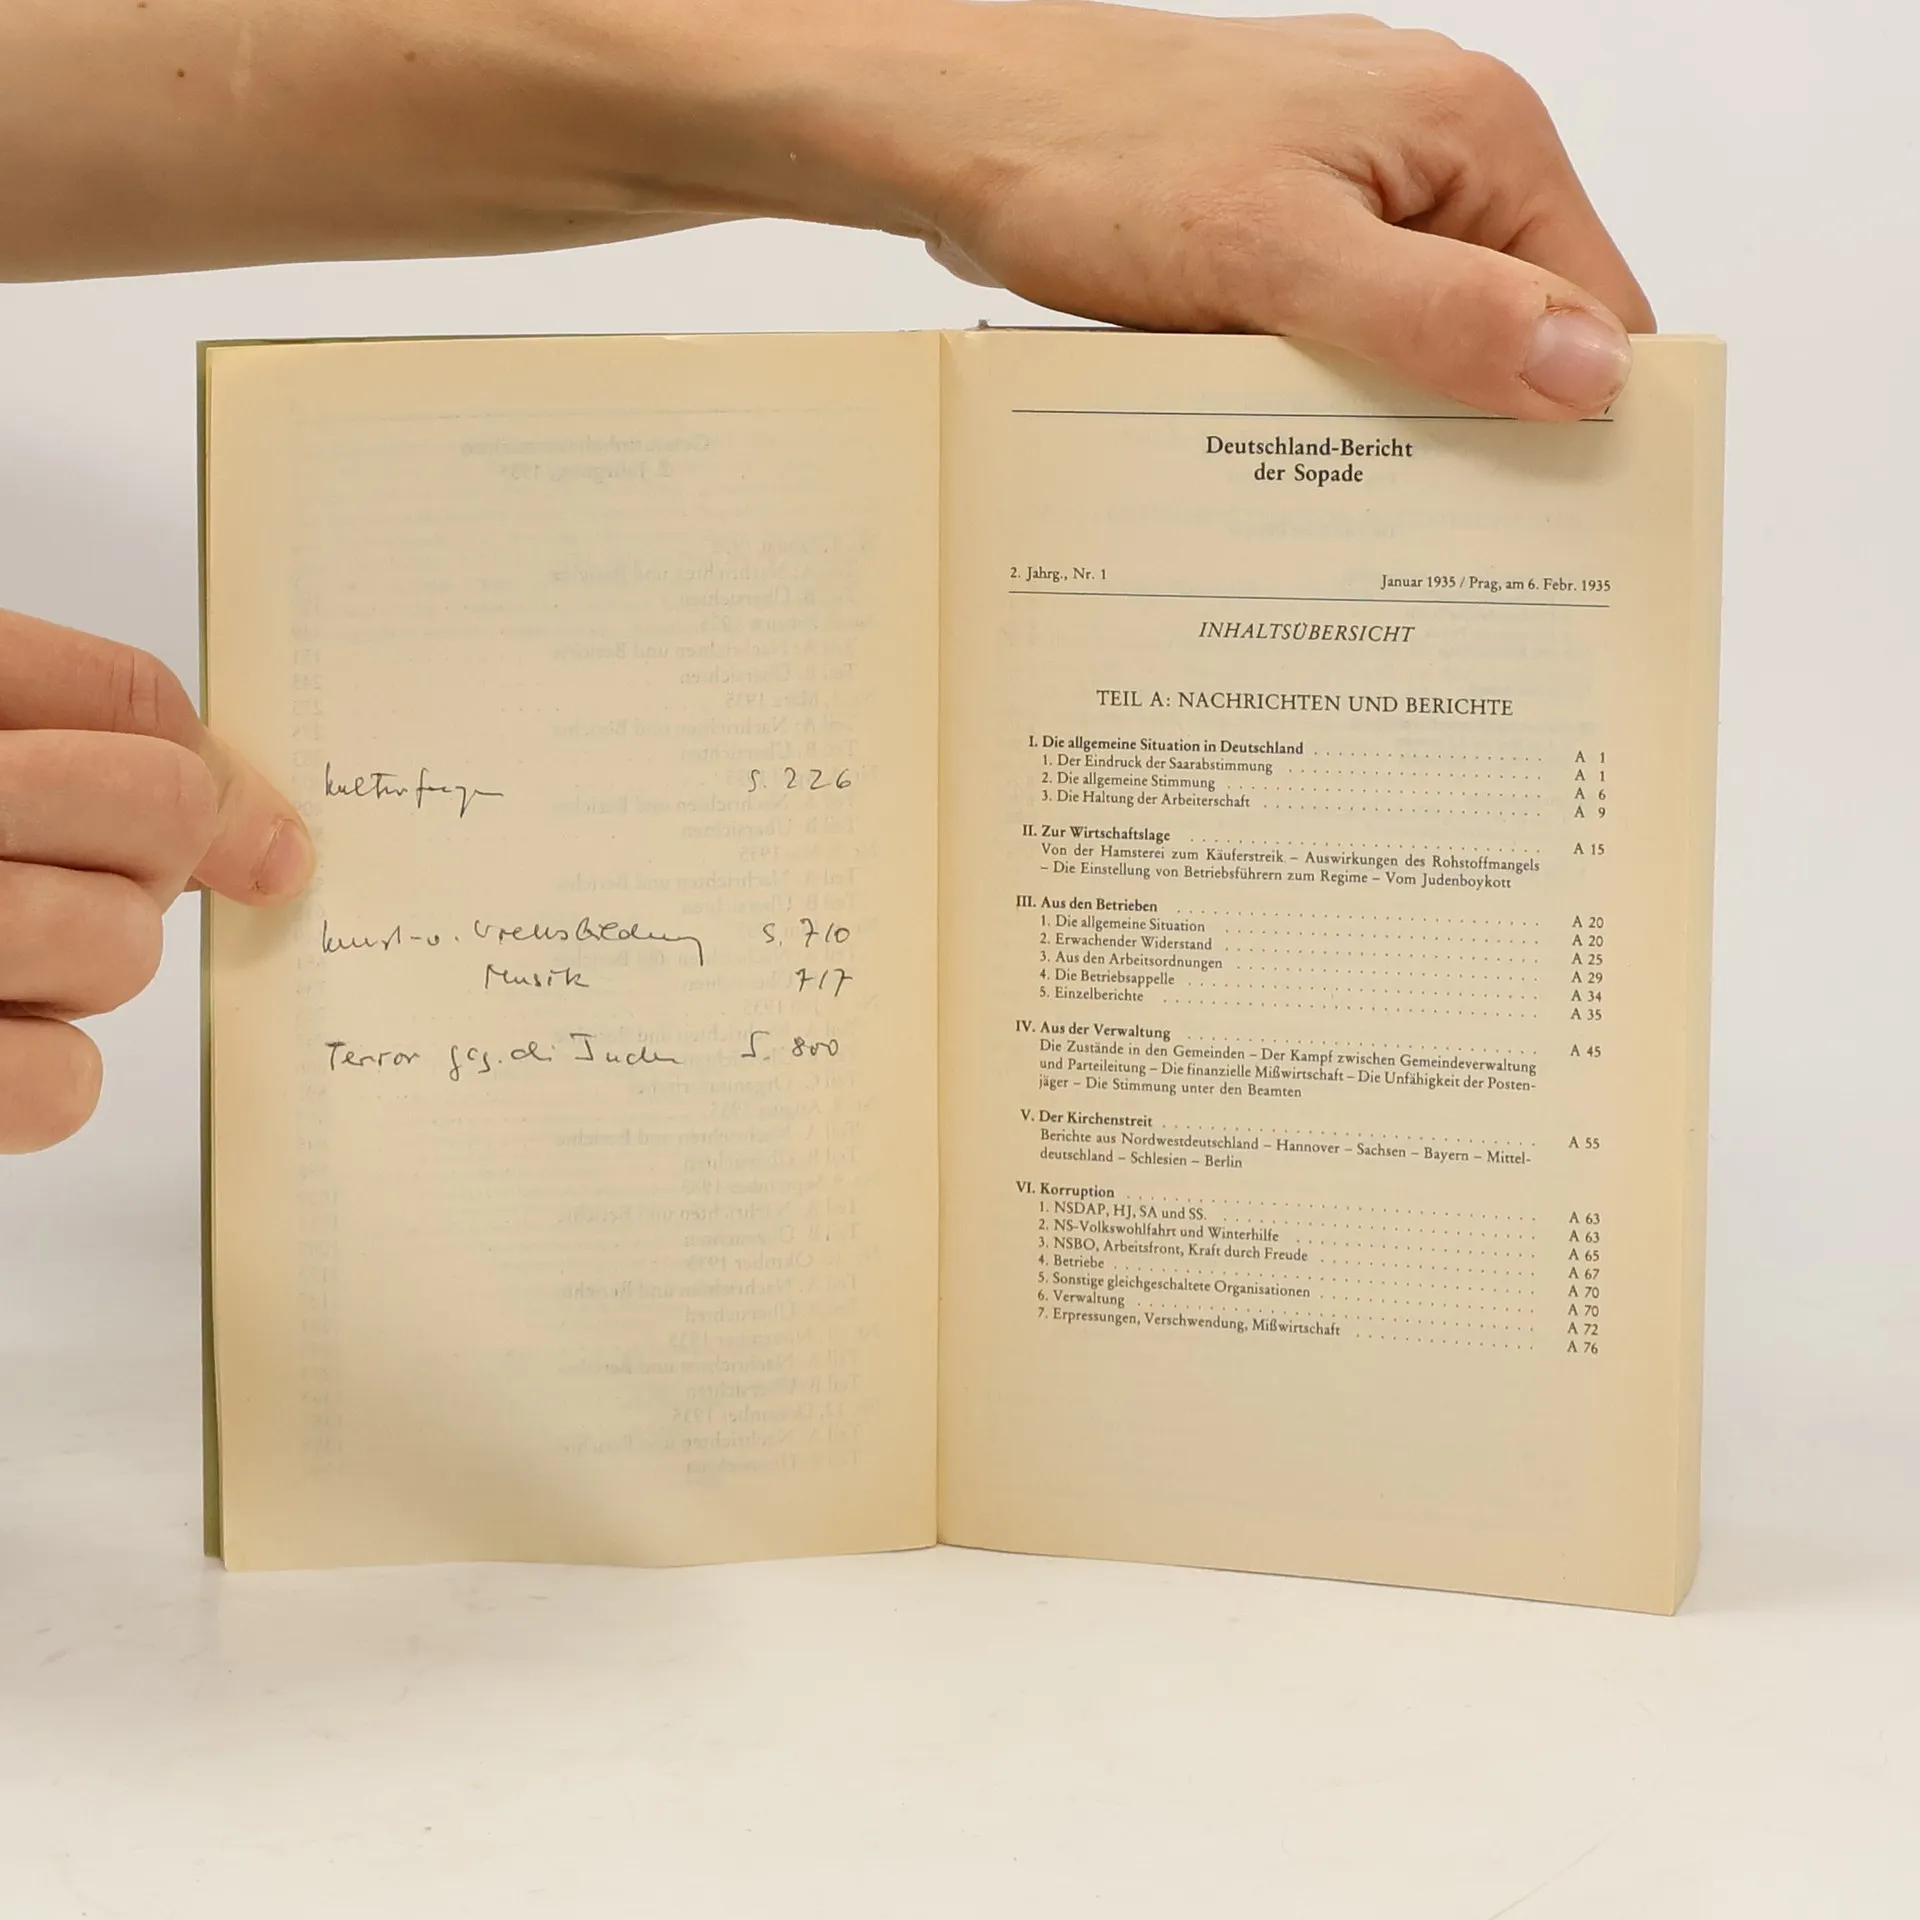 Kulturfragen S. 226
Kunst- u. Volksbildung S. 710
Musik 717
Terror geg. die Juden S. 800
Deutschland-Bericht
der Sopade
2. Jahrg., Nr. 1 Januar 1935 / Prag, am 6. Febr. 1935
INHALTSÜBERSICHT
TEIL A: NACHRICHTEN UND BERICHTE
I. Die allgemeine Situation in Deutschland . . . . . . . . . . . . . . . . A 1
1. Der Eindruck der Saarabstimmung . . . . . . . . . . . . . . . . A 1
2. Die allgemeine Stimmung . . . . . . . . . . . . . . . . A 6
3. Die Haltung der Arbeiterschaft . . . . . . . . . . . . . . . . A 9
II. Zur Wirtschaftslage . . . . . . . . . . . . . . . . A 15
Von der Hamsterei zum Käuferstreik – Auswirkungen des Rohstoffmangels
– Die Einstellung von Betriebsführern zum Regime – Vom Judenboykott
III. Aus den Betrieben . . . . . . . . . . . . . . . . A 20
1. Die allgemeine Situation . . . . . . . . . . . . . . . . A 20
2. Erwachender Widerstand . . . . . . . . . . . . . . . . A 25
3. Aus den Arbeitsordnungen . . . . . . . . . . . . . . . . A 29
4. Die Betriebsappelle . . . . . . . . . . . . . . . . A 34
5. Einzelberichte . . . . . . . . . . . . . . . . A 35
IV. Aus der Verwaltung . . . . . . . . . . . . . . . . A 45
Die Zustände in den Gemeinden – Der Kampf zwischen Gemeindeverwaltung
und Parteileitung – Die finanzielle Mißwirtschaft – Die Unfähigkeit der Posten-
jäger – Die Stimmung unter den Beamten
V. Der Kirchenstreit . . . . . . . . . . . . . . . . A 55
Berichte aus Nordwestdeutschland – Hannover – Sachsen – Bayern – Mittel-
deutschland – Schlesien – Berlin
VI. Korruption . . . . . . . . . . . . . . . . A 63
1. NSDAP, HJ, SA und SS. . . . . . . . . . . . . . . . . A 63
2. NS-Volkswohlfahrt und Winterhilfe . . . . . . . . . . . . . . . . A 65
3. NSBO, Arbeitsfront, Kraft durch Freude . . . . . . . . . . . . . . . . A 67
4. Betriebe . . . . . . . . . . . . . . . . A 70
5. Sonstige gleichgeschaltete Organisationen . . . . . . . . . . . . . . . . A 70
6. Verwaltung . . . . . . . . . . . . . . . . A 72
7. Erpressungen, Verschwendung, Mißwirtschaft . . . . . . . . . . . . . . . . A 76